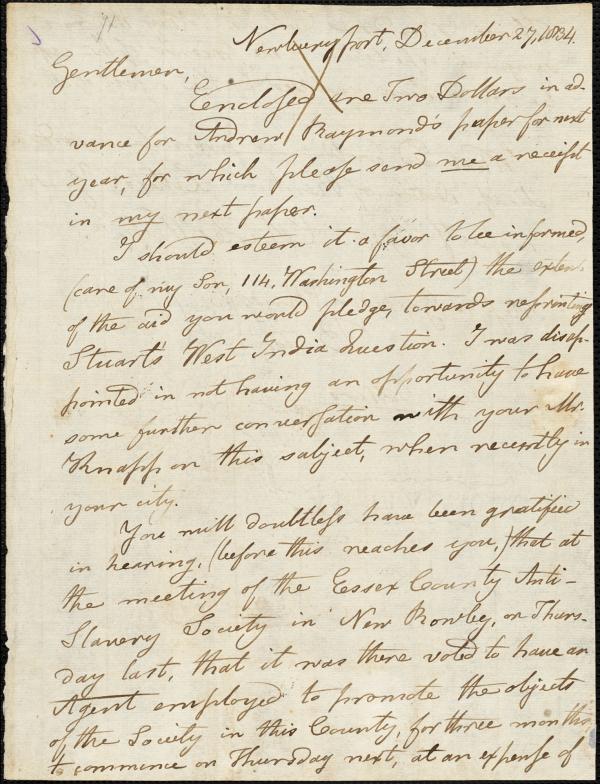 Newburyport, December 27, 1834.
Gentlemen,
Enclosed are Two Dollars in ad-
vance for Andrew Raymond's paper for next
year, for which please send me a receipt
in my next paper.
I should esteem it a favor to be informed,
(care of my Son, 114, Washington Street) the extent
of the aid you would pledge, towards reprinting
Stuart's West India Question. I was disap-
pointed in not having an opportunity to have
some further conversation with your Mr.
Knapp on this subject, when recently in
your city.
You will doubtless have been gratified
in hearing, (before this reaches you,) that at
the meeting of the Essex County Anti-
Slavery Society in New Rowley, on Thurs-
day last, that it was there voted to have an
Agent employed to promote the objects
of the Society in this County, for three months,
to commence on Thursday next, at an expense of